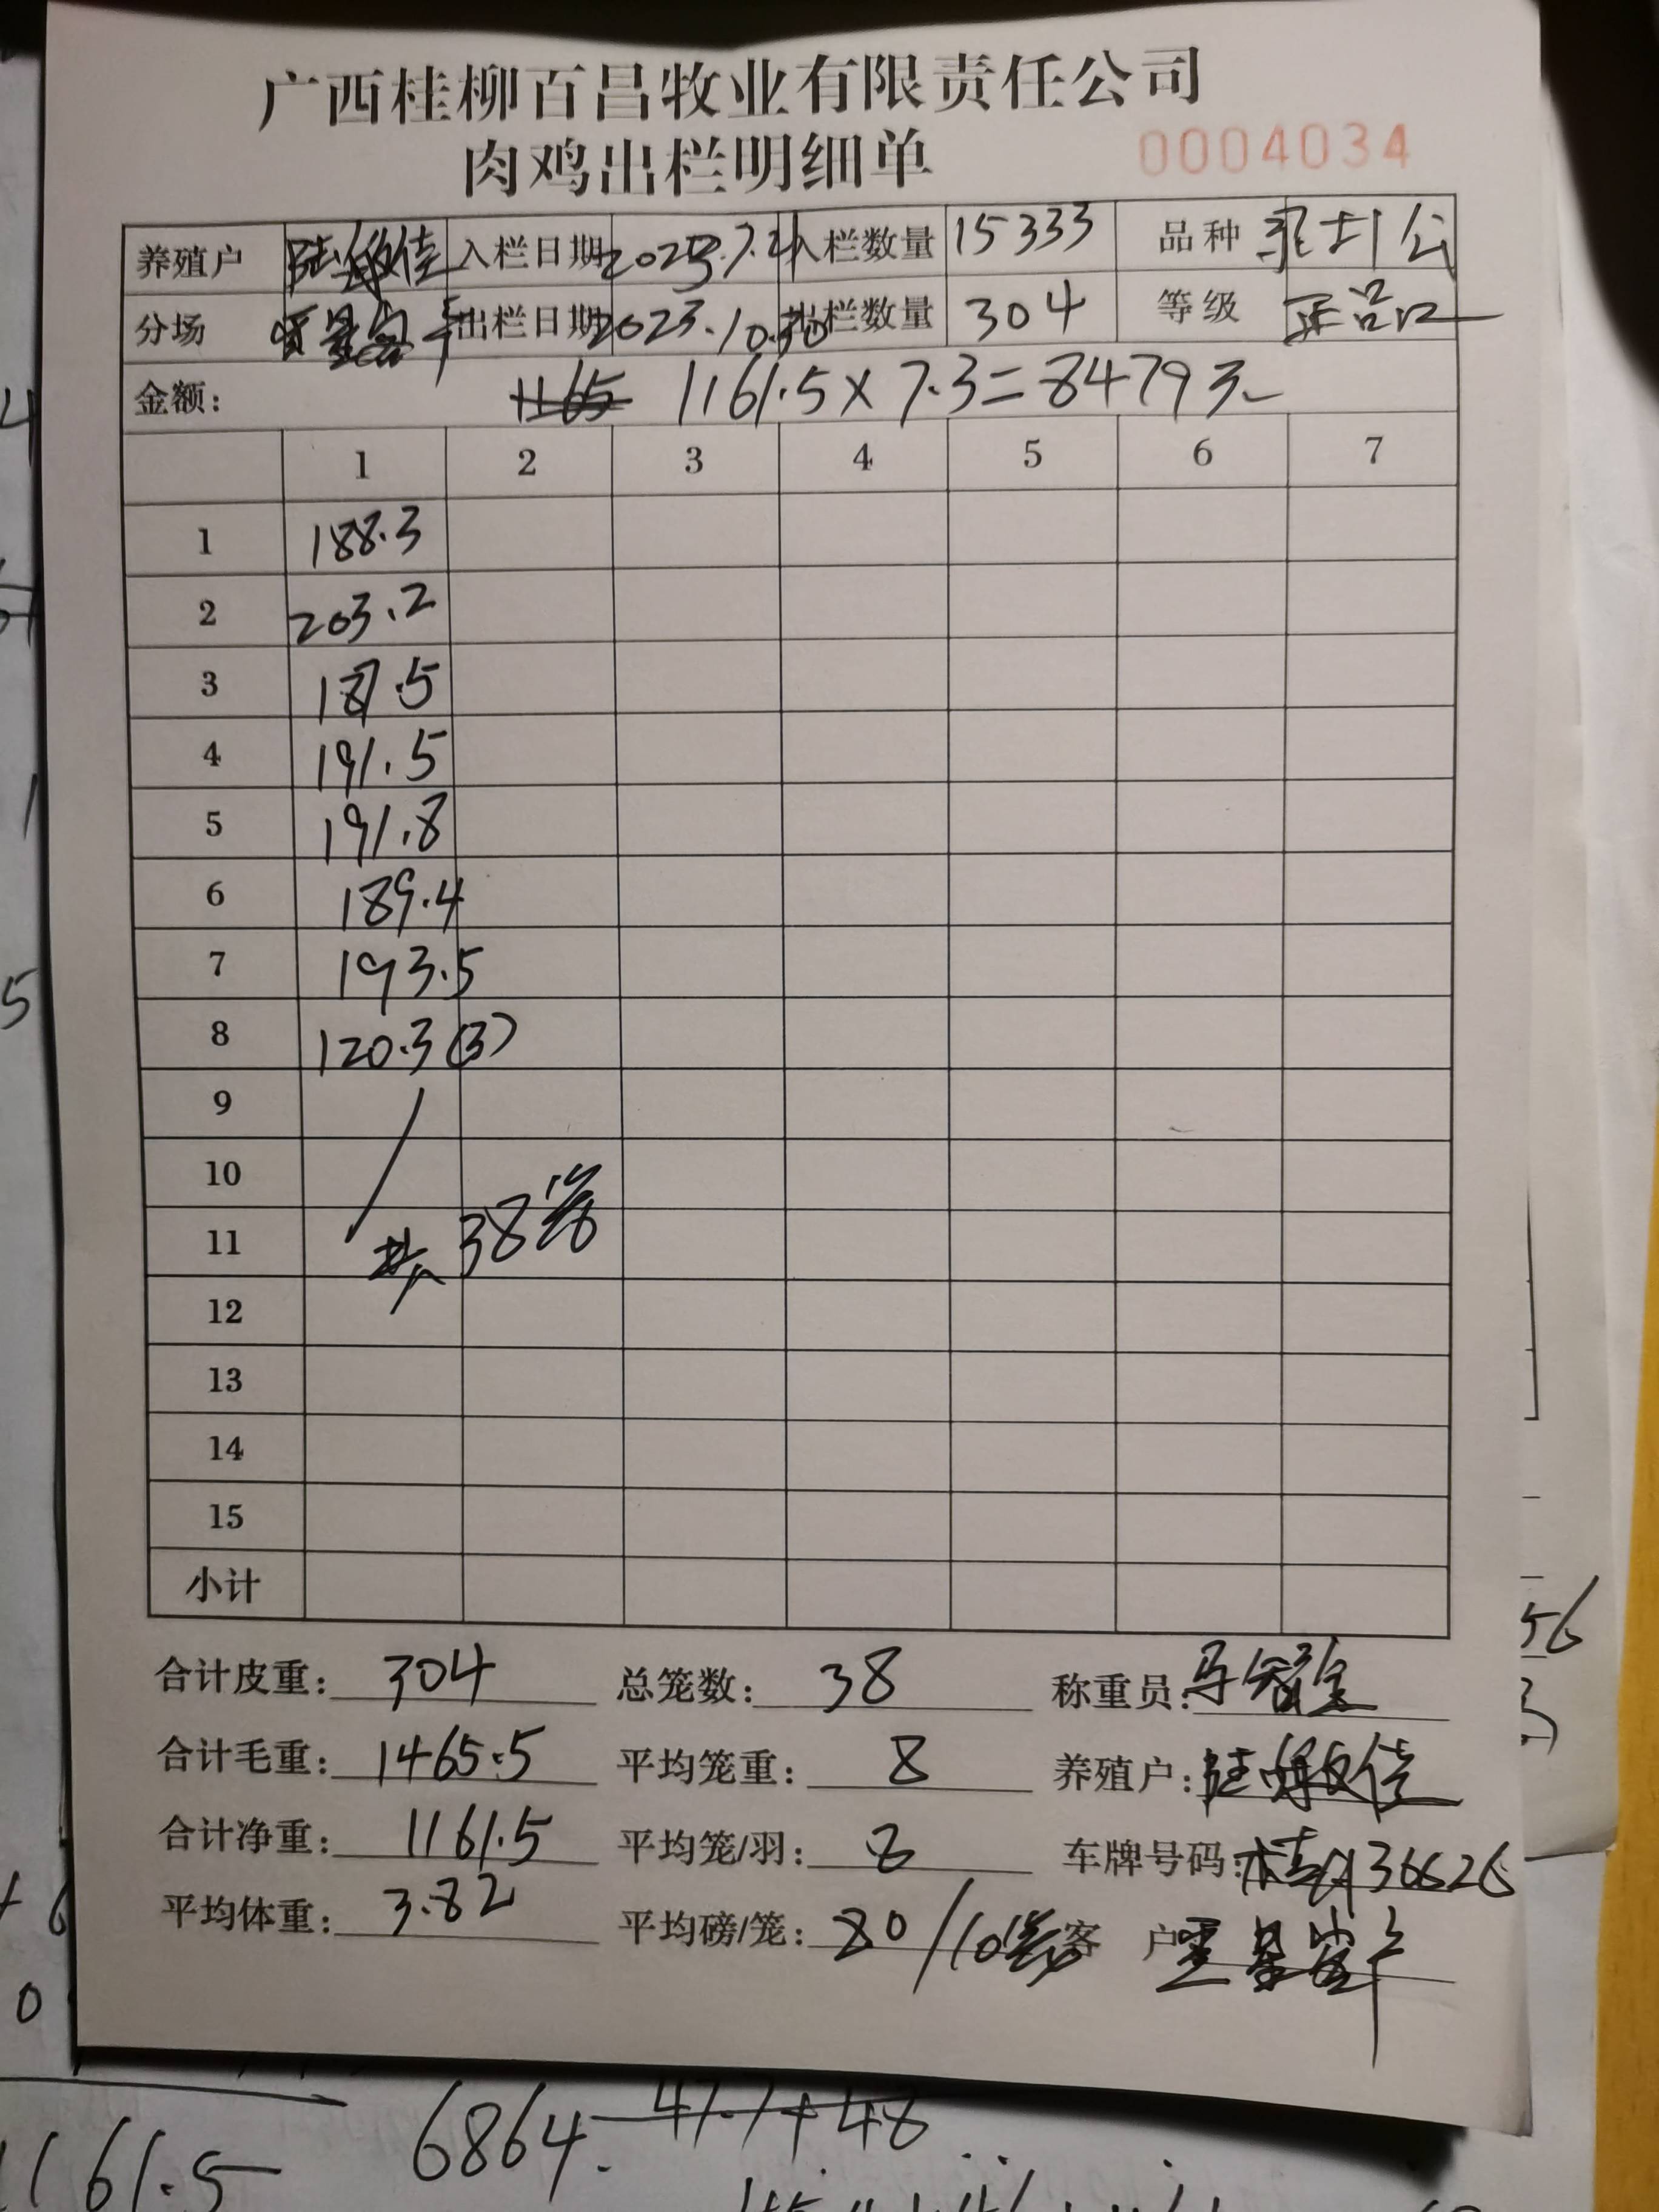 广西桂柳百昌牧业有限责任公司
肉鸡出栏明细单 0004034
养殖户 陆敏佳 入栏日期 2023.7. 入栏数量 15333 品种 公
分场 出栏日期 2023.10.30 出栏数量 304 等级 正品
金额: 1165 1161.5×7.3=84793
1 2 3 4 5 6 7
1 188.3
2 203.2
3 187.5
4 191.5
5 191.8
6 189.4
7 193.5
8 120.3(3)
9
10
11 共38笼
12
13
14
15
小计
合计皮重: 304 总笼数: 38 称重员:
合计毛重: 1465.5 平均笼重: 8 养殖户: 陆敏佳
合计净重: 1161.5 平均笼/羽: 8 车牌号码: 36626
平均体重: 3.82 平均磅/笼: 80/10笼 客户
1161.5 6864. 47.7+48
56